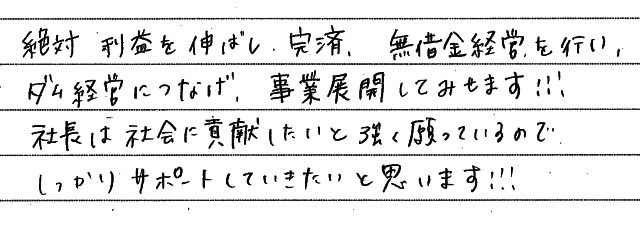 絶対 利益を伸ばし、完済、 無借金経営を行い、
ダム経営につなげ、事業展開してみせます!!!
社長は社会に貢献したいと強く願っているので
しっかりサポートしていきたいと思います!!!